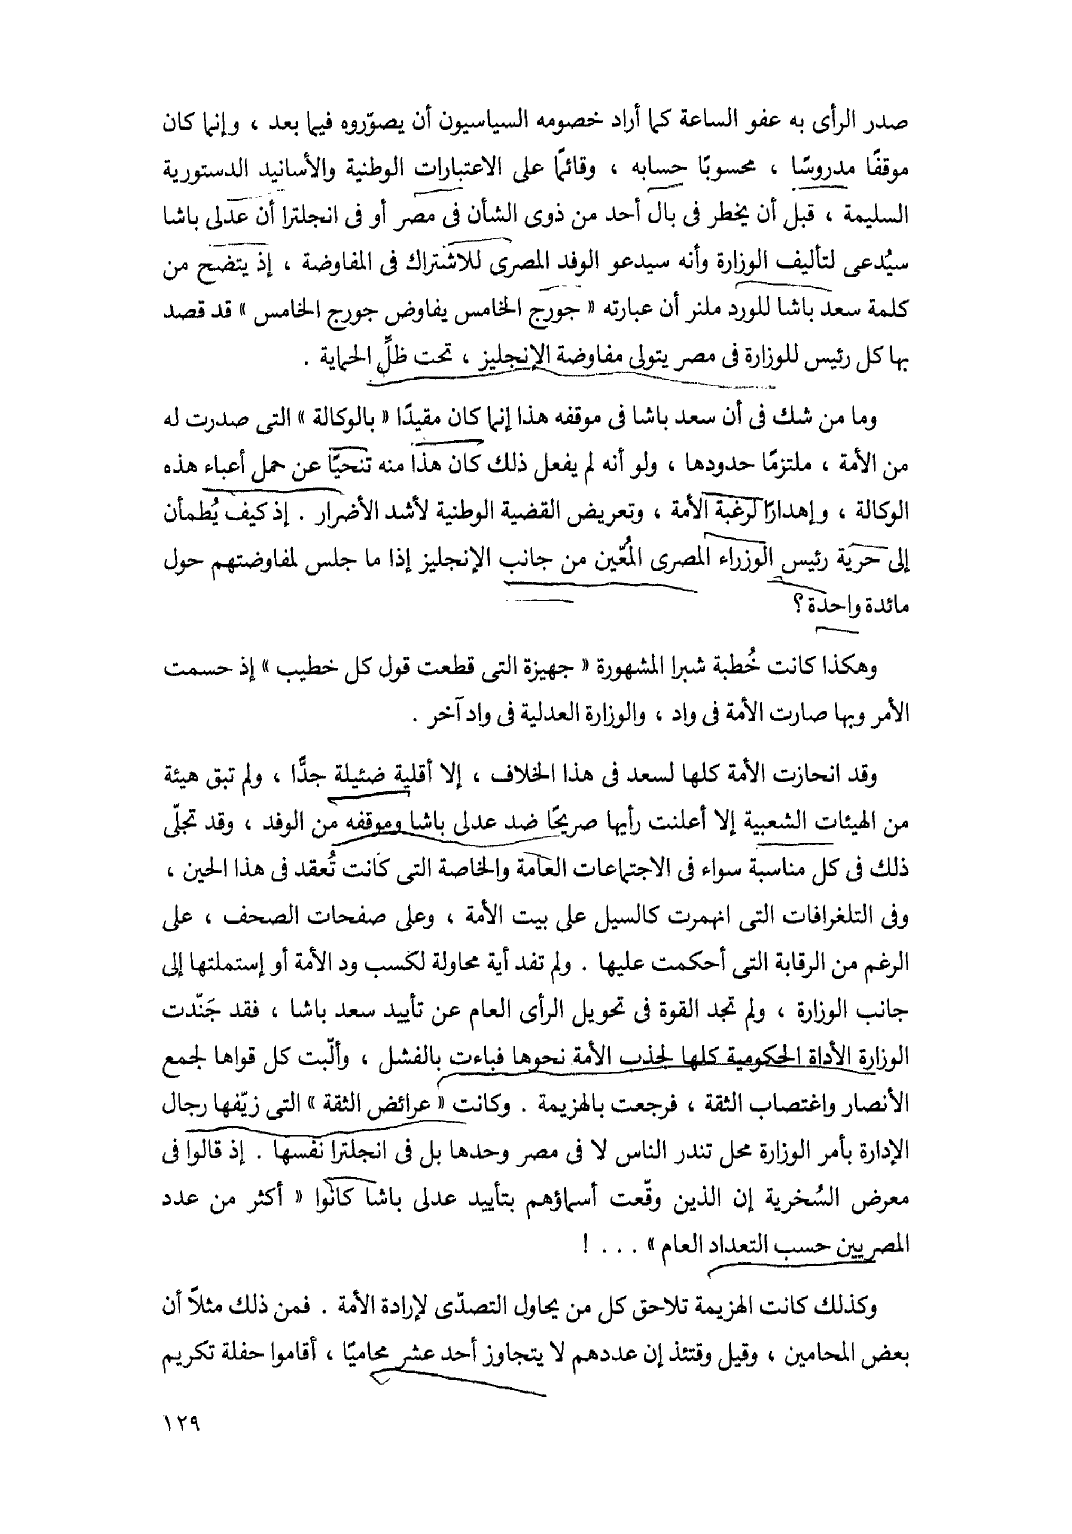 صدر الرأى به عفو الساعة كما أراد خصومه السياسيون أن يصوّروه فيما بعد ، وإنما كان
موقفًا مدروسًا ، محسوبًا حسابه ، وقائمًا على الاعتبارات الوطنية والأسانيد الدستورية
السليمة ، قبل أن يخطر فى بال أحد من ذوى الشأن فى مصر أو فى انجلترا أن عدلى باشا
سيُدعى لتأليف الوزارة وأنه سيدعو الوفد المصرى للاشتراك فى المفاوضة ، إذ يتضح من
كلمة سعد باشا للورد ملنر أن عبارته « جورج الخامس يفاوض جورج الخامس » قد قصد
بها كل رئيس للوزارة فى مصر يتولى مفاوضة الإنجليز ، تحت ظلِّ الحماية .
وما من شك فى أن سعد باشا فى موقفه هذا إنما كان مقيدًا « بالوكالة » التى صدرت له
من الأمة ، ملتزمًا حدودها ، ولو أنه لم يفعل ذلك كان هذا منه تنحيًا عن حمل أعباء هذه
الوكالة ، وإهدارًا لرغبة الأمة ، وتعريض القضية الوطنية لأشد الأضرار . إذ كيف يُطمأن
إلى حرية رئيس الوزراء المصرى المُعّين من جانب الإنجليز إذا ما جلس لمفاوضتهم حول
مائدة واحدة ؟
وهكذا كانت خُطبة شبرا المشهورة « جهيزة التى قطعت قول كل خطيب » إذ حسمت
الأمر وبها صارت الأمة فى واد ، والوزارة العدلية فى واد آخر .
وقد انحازت الأمة كلها لسعد فى هذا الخلاف ، إلا أقلية ضئيلة جدًّا ، ولم تبق هيئة
من الهيئات الشعبية إلا أعلنت رأيها صريحًا ضد عدلى باشا وموقفه من الوفد ، وقد تجلّى
ذلك فى كل مناسبة سواء فى الاجتماعات العامة والخاصة التى كانت تُعقد فى هذا الحين ،
وفى التلغرافات التى انهمرت كالسيل على بيت الأمة ، وعلى صفحات الصحف ، على
الرغم من الرقابة التى أحكمت عليها . ولم تفد أية محاولة لكسب ود الأمة أو إستملتها إلى
جانب الوزارة ، ولم تجد القوة فى تحويل الرأى العام عن تأييد سعد باشا ، فقد جَنّدت
الوزارة الأداة الحكومية كلها لجذب الأمة نحوها فباءت بالفشل ، وألّبت كل قواها لجمع
الأنصار واغتصاب الثقة ، فرجعت بالهزيمة . وكانت « عرائض الثقة » التى زيّفها رجال
الإدارة بأمر الوزارة محل تندر الناس لا فى مصر وحدها بل فى انجلترا نفسها . إذ قالوا فى
معرض السُخرية إن الذين وقّعت أسماؤهم بتأييد عدلى باشا كانوا « أكثر من عدد
المصريين حسب التعداد العام » . . . !
وكذلك كانت الهزيمة تلاحق كل من يحاول التصدّى لإرادة الأمة . فمن ذلك مثلاً أن
بعض المحامين ، وقيل وقتئذ إن عددهم لا يتجاوز أحد عشر محاميًا ، أقاموا حفلة تكريم
١٢٩